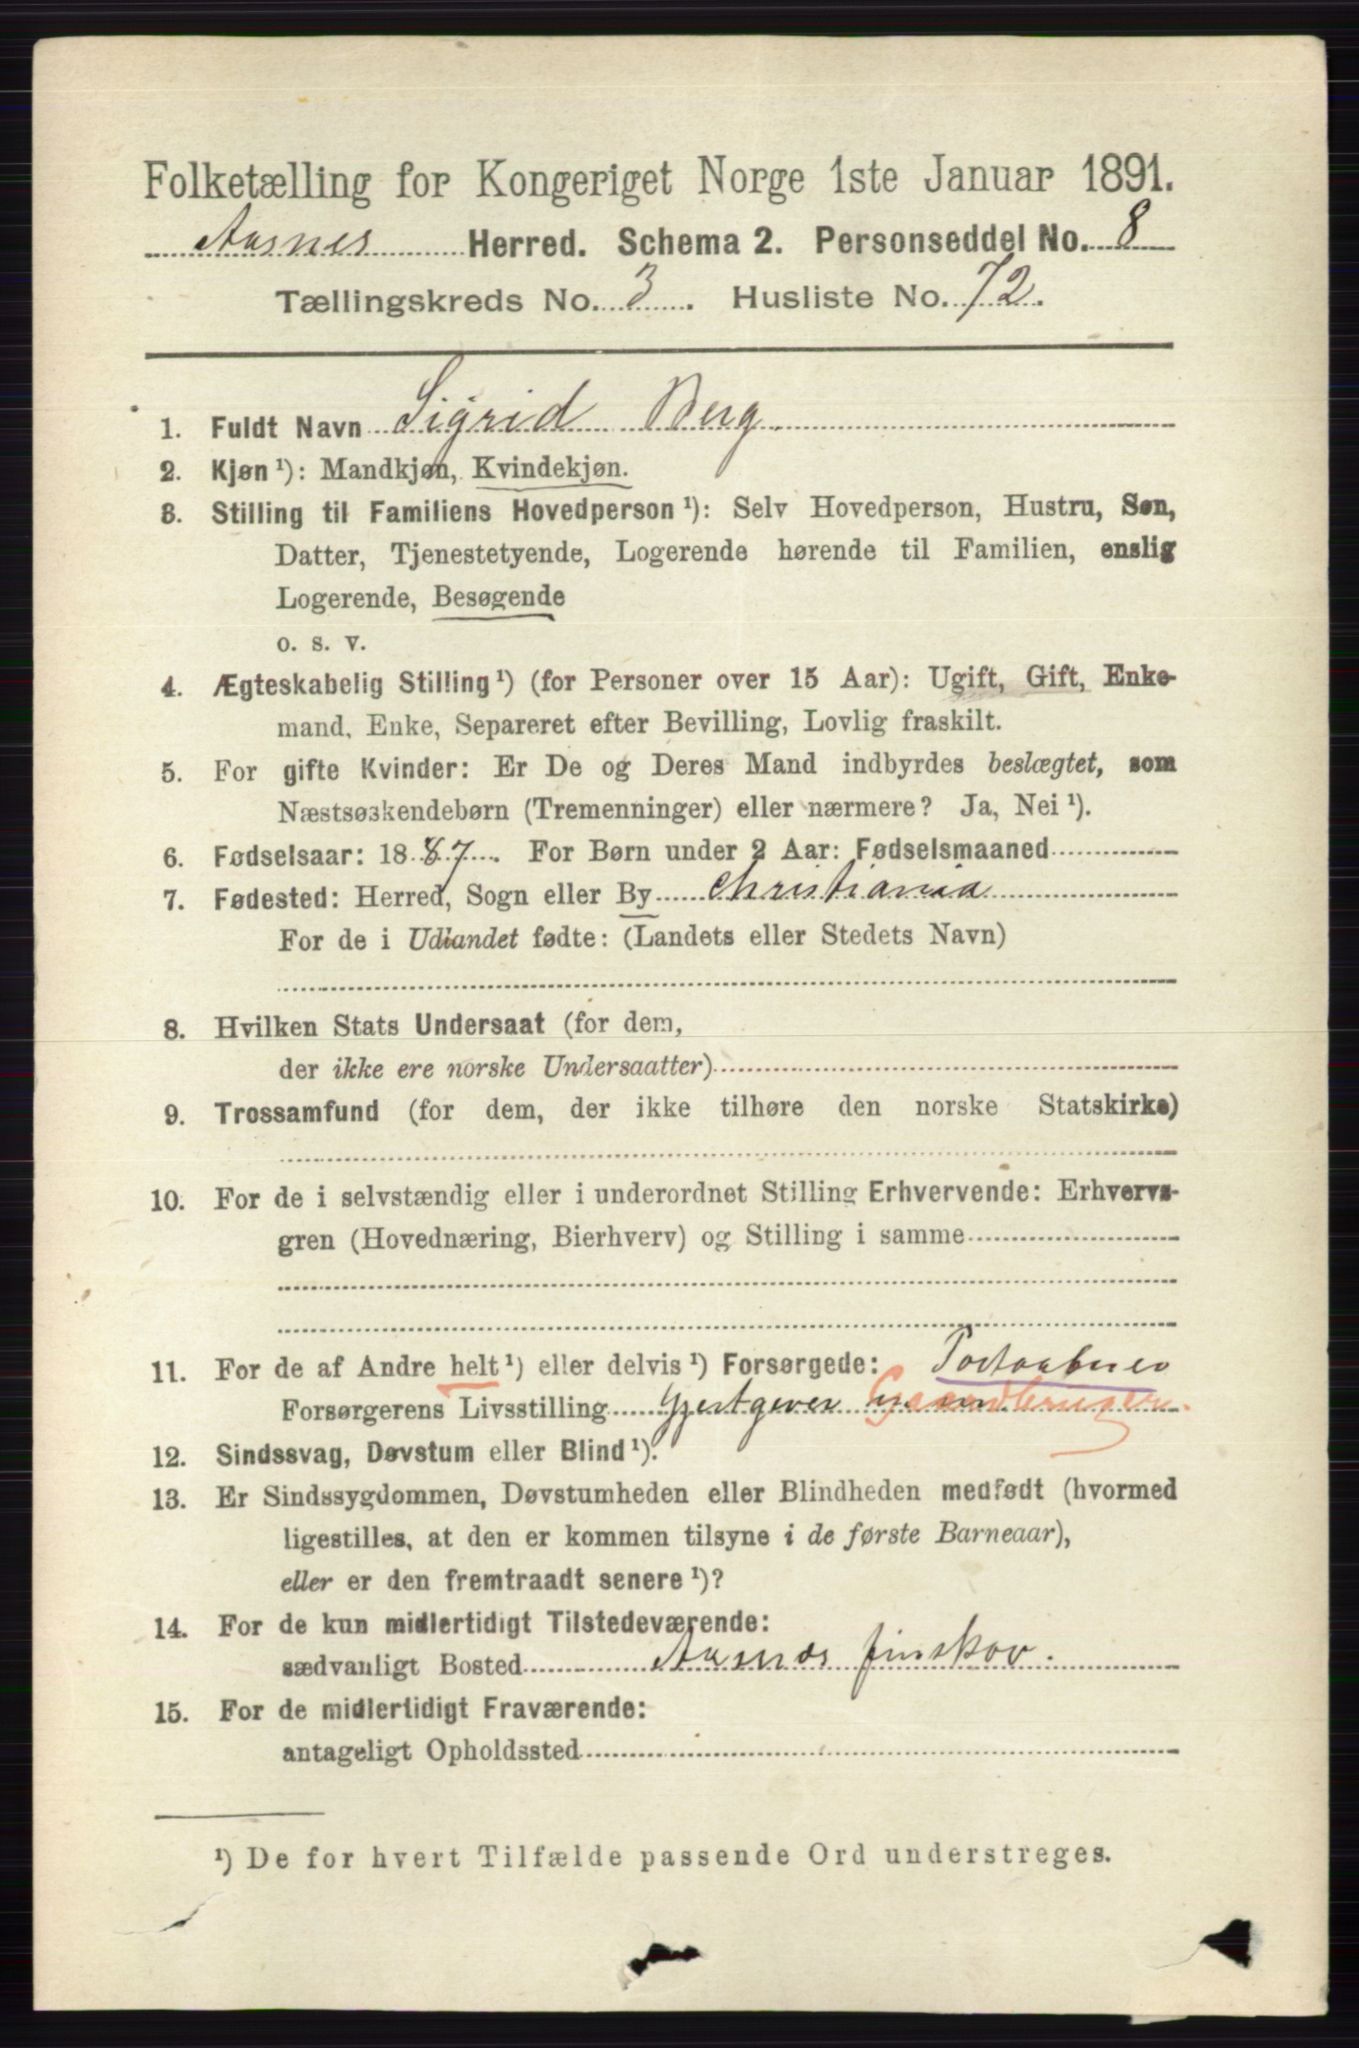 Folketælling for Kongeriget Norge 1ste Januar 1891.
Aasnes Herred. Schema 2. Personseddel No. 8
Tællingskreds No. 3. Husliste No. 72.
1. Fuldt Navn Sigrid Berg.
2. Kjøn ¹): Mandkjøn, Kvindekjøn.
3. Stilling til Familiens Hovedperson ¹): Selv Hovedperson, Hustru, Søn,
Datter, Tjenestetyende, Logerende hørende til Familien, enslig
Logerende, Besøgende
o. s. v.
4. Ægteskabelig Stilling ¹) (for Personer over 15 Aar): Ugift, Gift, Enke-
mand, Enke, Separeret efter Bevilling, Lovlig fraskilt.
5. For gifte Kvinder: Er De og Deres Mand indbyrdes beslægtet, som
Næstsøskendebørn (Tremenninger) eller nærmere? Ja, Nei ¹).
6. Fødselsaar: 1887. For Børn under 2 Aar: Fødselsmaaned
7. Fødested: Herred, Sogn eller By Christiania
For de i Udlandet fødte: (Landets eller Stedets Navn)
8. Hvilken Stats Undersaat (for dem,
der ikke ere norske Undersaatter)
9. Trossamfund (for dem, der ikke tilhøre den norske Statskirke)
10. For de i selvstændig eller i underordnet Stilling Erhvervende: Erhvervs-
gren (Hovednæring, Bierhverv) og Stilling i samme
11. For de af Andre helt ¹) eller delvis ¹) Forsørgede: Postaabner
Forsørgerens Livsstilling Gjestgever Gaardbruger.
12. Sindssvag, Døvstum eller Blind ¹).
13. Er Sindssygdommen, Døvstumheden eller Blindheden medfødt (hvormed
ligestilles, at den er kommen tilsyne i de første Barneaar),
eller er den fremtraadt senere ¹)?
14. For de kun midlertidigt Tilstedeværende:
sædvanligt Bosted Aasnæs finskov.
15. For de midlertidigt Fraværende:
antageligt Opholdssted
¹) De for hvert Tilfælde passende Ord understreges.